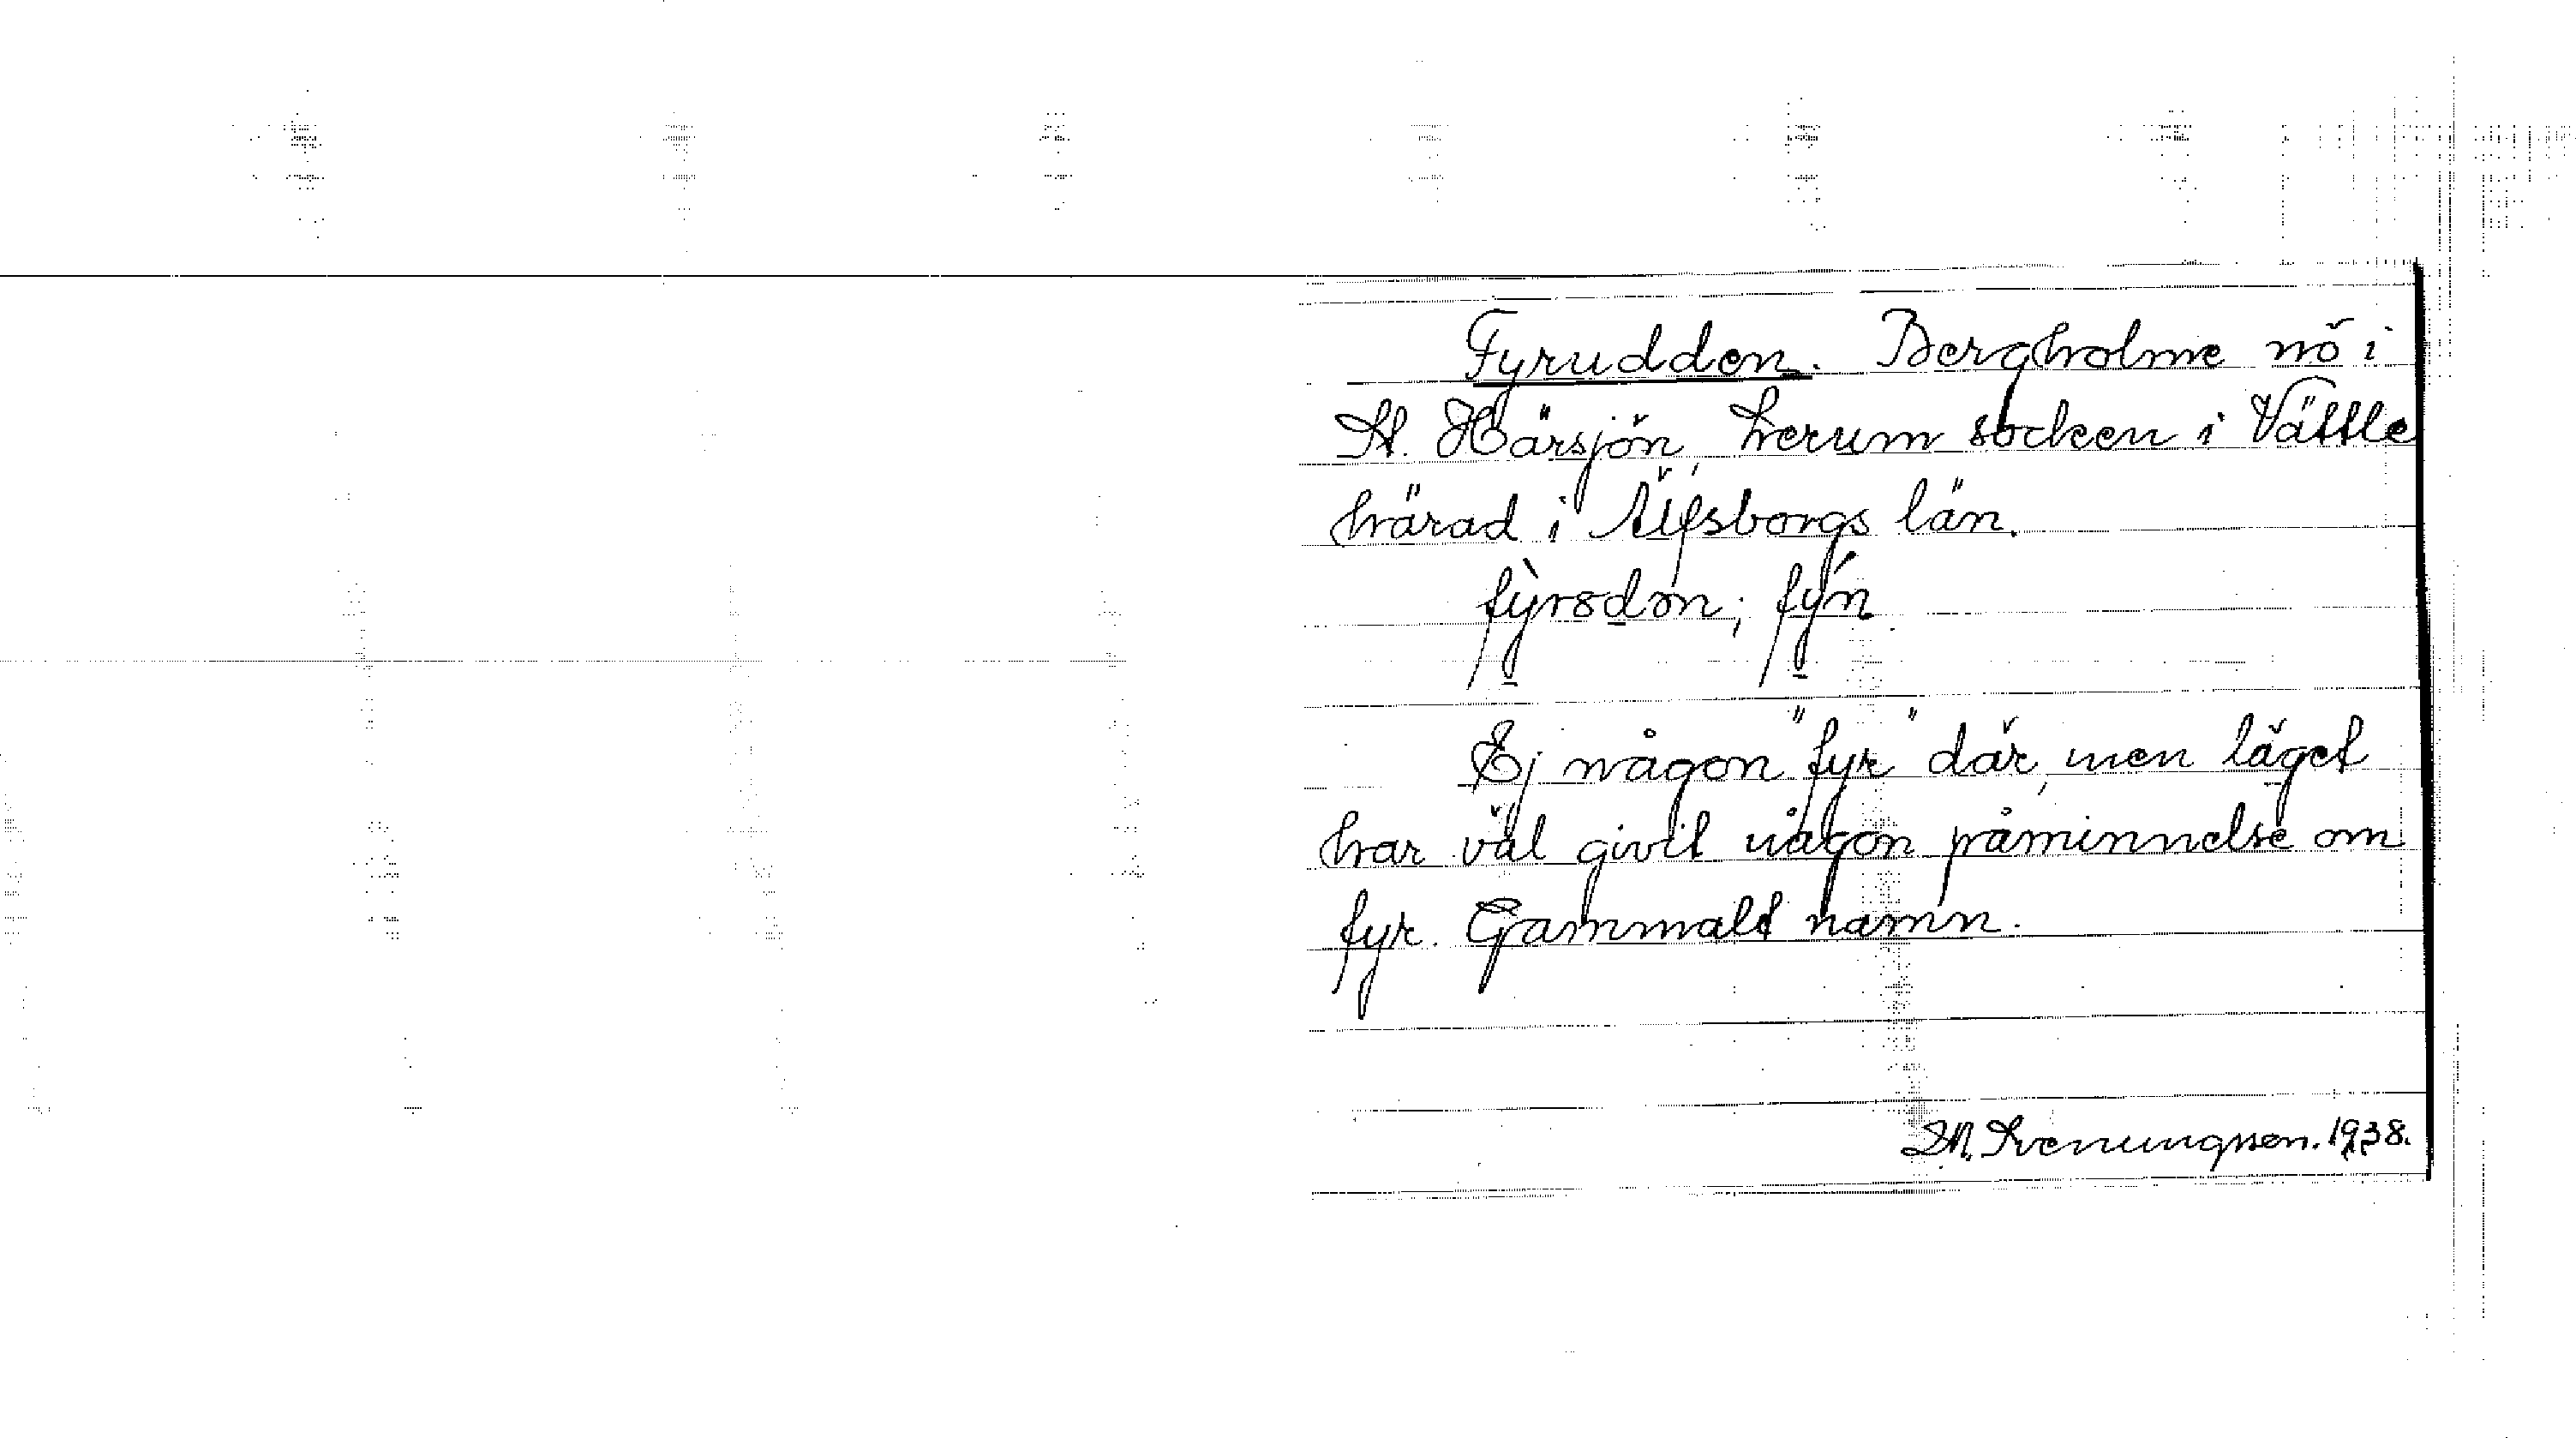 Fyrudden. Bergholme nö i
St. Härsjön, Lerum socken i Vättle
härad i Älfsborgs län.
fyn
Ej någon "fyr" där, men läget
har väl givit någon påminnelse om
fyr. Gammalt namn.
Svenungsson. 1938.